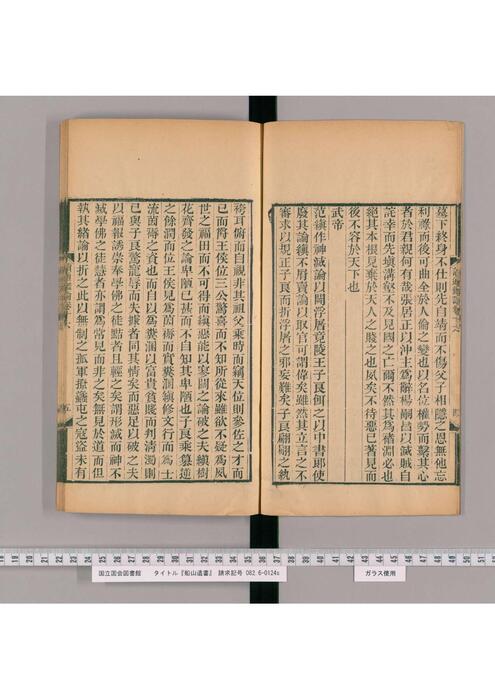 幕下終身不仕則先自靖而不傷父子相隱之恩無他忘
利祿而後可曲全於人倫之變也以名位權勢而繫其心
者於君親何有哉張居正以沖主為辭楊嗣昌以滅賊自
詫幸而先填溝壑不及見國之亡爾不然其為褚淵必也
絕其本根見棄於天人之賤之也夙矣不待惡已著見而
後不容於天下也
武帝
范縝作神滅論以闢浮屠竟陵王子良餌之以中書郎使
廢其論縝不屑賣論以取官可謂偉矣雖然其立言之不
審求以規正子良而折浮屠之邪妄難矣子良翩翩之紈
袴耳俯而自視非其祖父乘時而竊天位則參佐之才而
已而爵王侯位三公驚喜而不知所從來雖欲不疑為夙
世之福田而不可得而縝惡能以寥闊之論破之夫縝樹
花齊發之論卑陋已甚而不自知其卑陋也子良乘篡逆
之餘潤而位王侯見為茵褥而實糞溷縝修文行而為士
流茵褥之資也而自以為糞溷以富貴貧賤而判清濁則
已與子良驚寵辱而失據者同其情矣而惡足以破之夫
以福報誘崇奉學佛之徒黠者且輕之矣謂形滅而神不
滅學佛之徒慧者亦謂為常見而非之矣無見於道而但
執其緒論以折之此以無制之孤軍撩蠭屯之寇盜未有
四
五
国立国会図書館　タイトル『船山遺書』　請求記号 082.6-O124s
ガラス使用